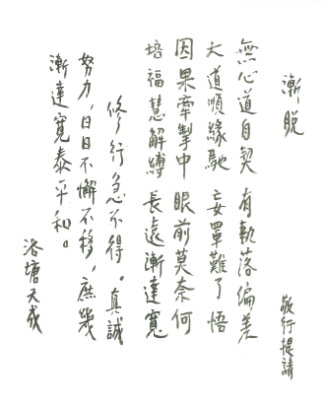 漸脫
敬行提請
無心道自契 有執落偏差
大道順緣馳 妄罩難了悟
因果牽掣中 眼前莫奈何
培福慧解縛 長遠漸達寬
修行急不得。真誠
努力，日日不懈不移，庶幾
漸達寬泰平和。
浴塘天成